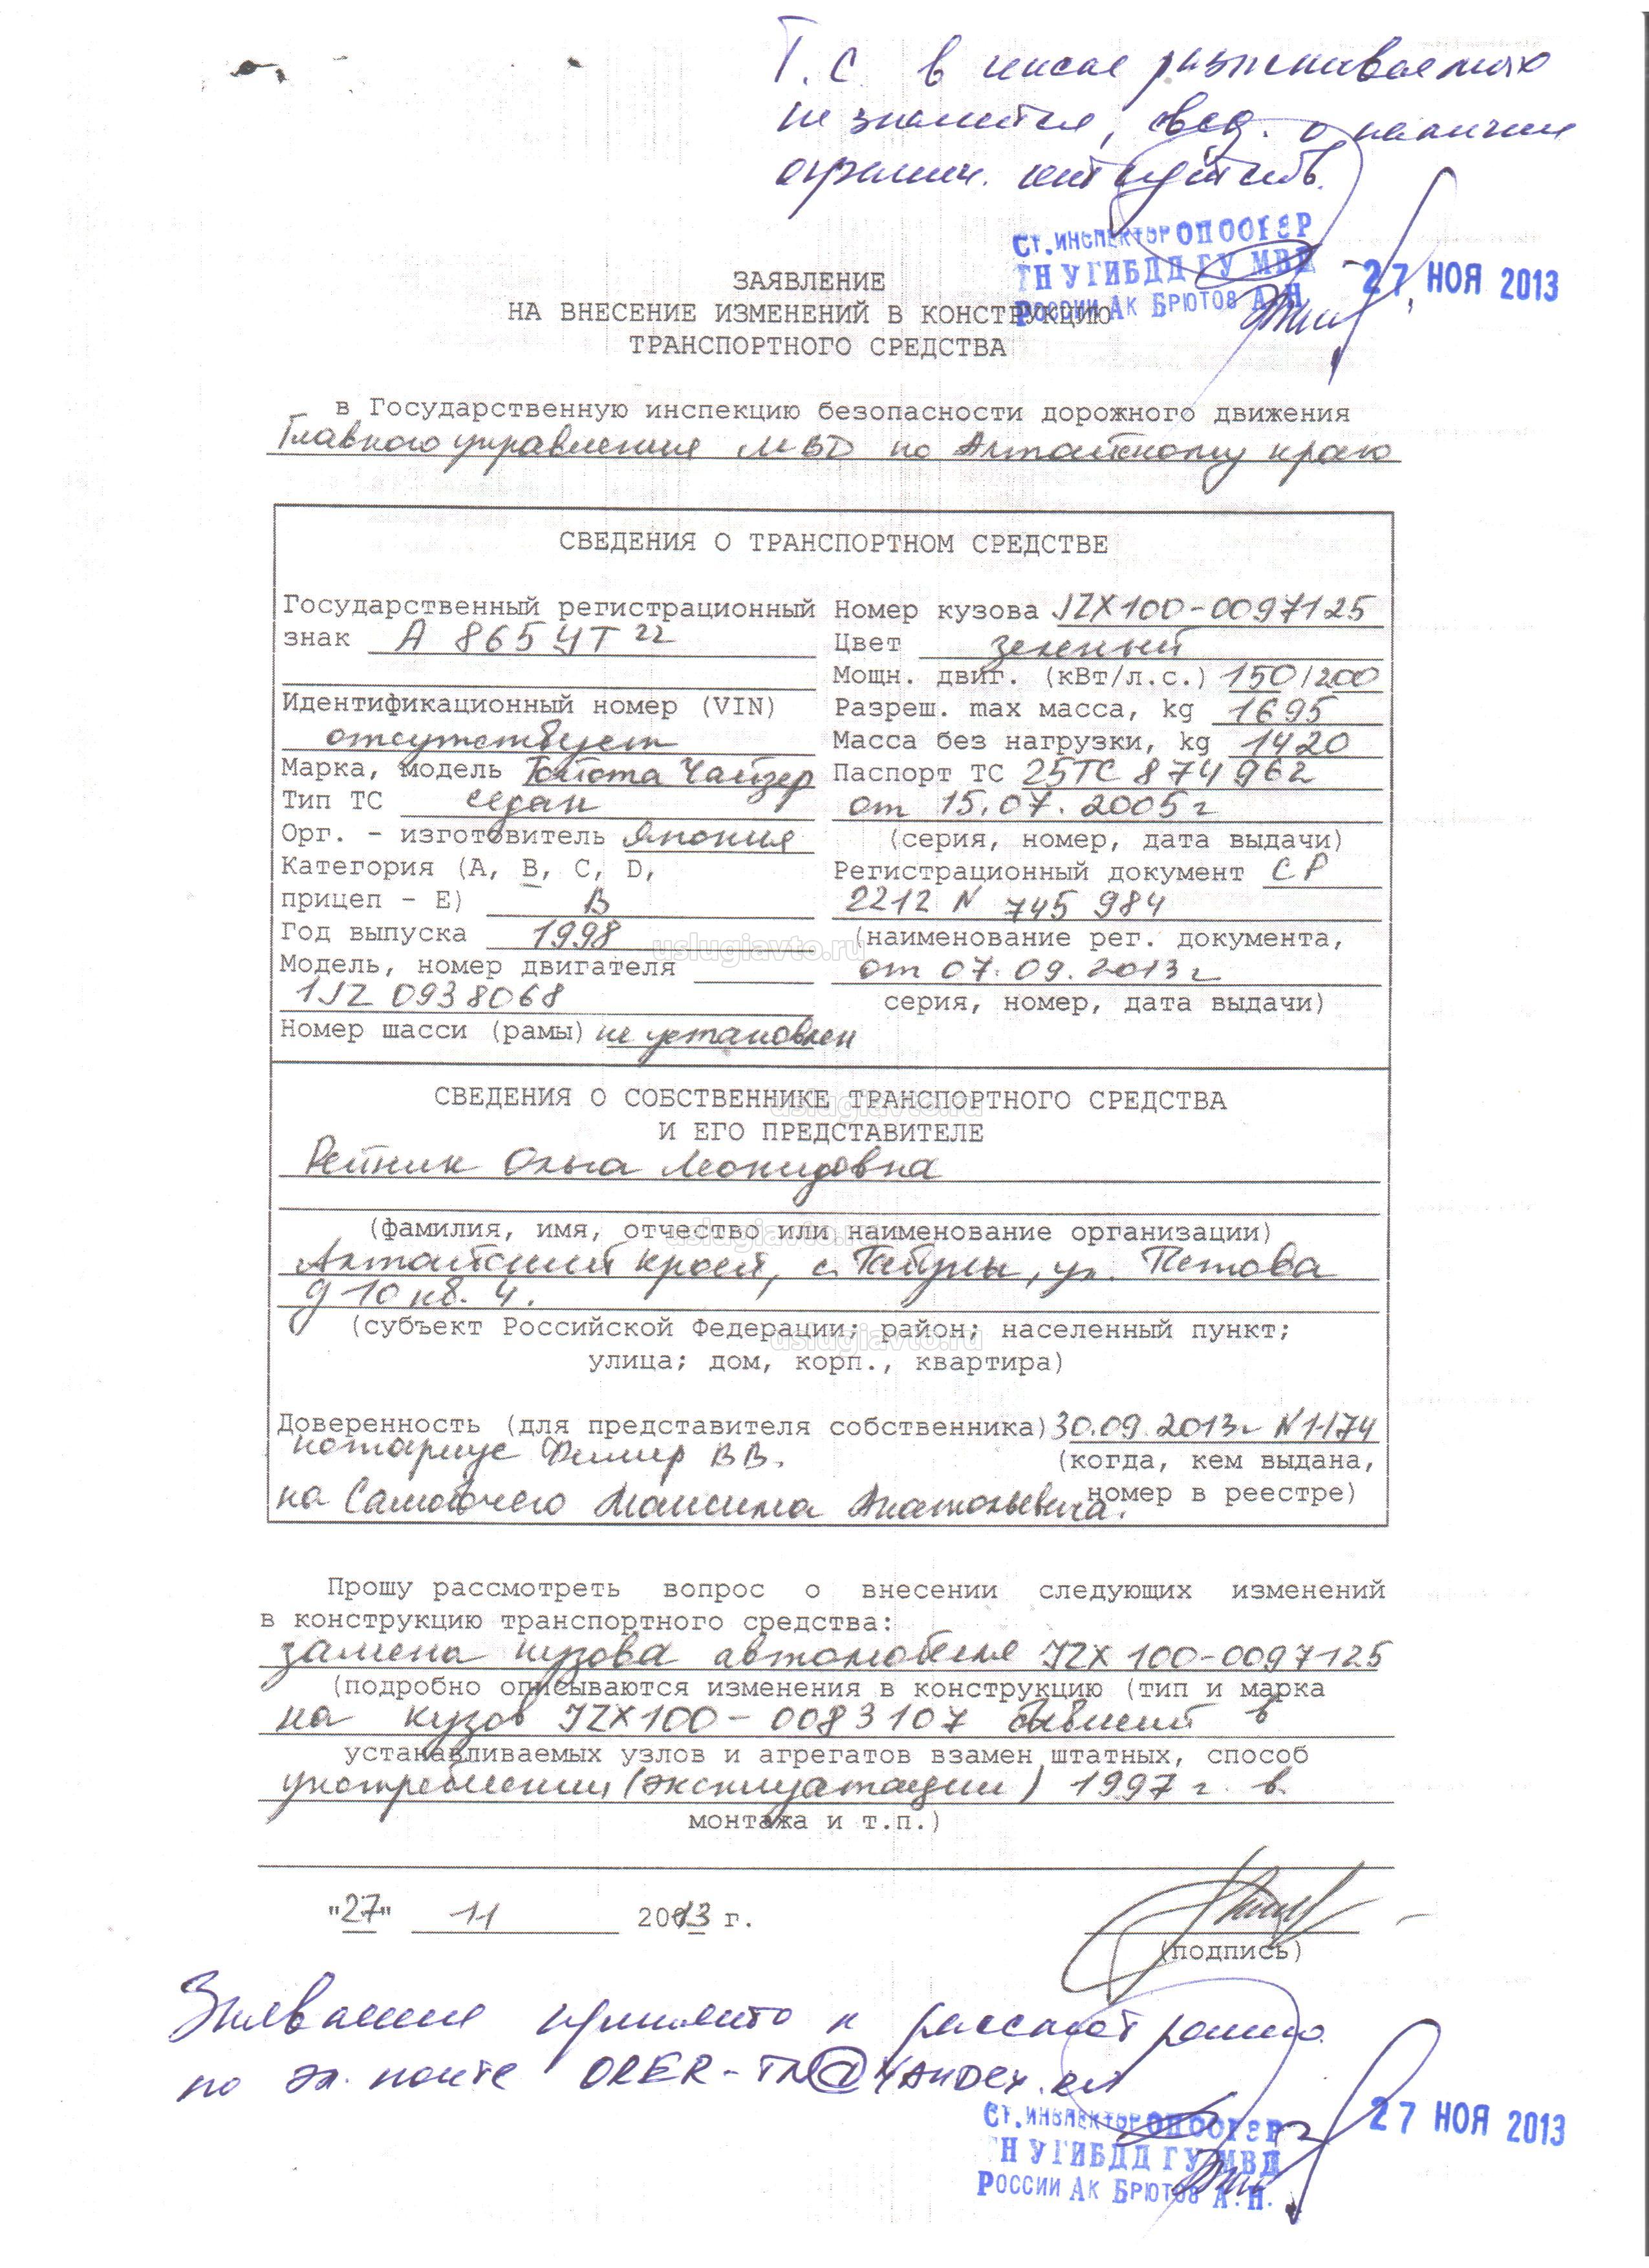 Т.С в числе разыскиваемых
не значится, свед. о наличии
огранич. отсутств.
Ст. инспектор ОП ООГЭР
ТН УГИБДД ГУ МВД
России АК Брютов А.Н.
27 НОЯ 2013
ЗАЯВЛЕНИЕ
НА ВНЕСЕНИЕ ИЗМЕНЕНИЙ В КОНСТРУКЦИЮ
ТРАНСПОРТНОГО СРЕДСТВА
в Государственную инспекцию безопасности дорожного движения
Главного управления МВД по Алтайскому краю
СВЕДЕНИЯ О ТРАНСПОРТНОМ СРЕДСТВЕ
Государственный регистрационный
знак А 865 УТ 22
Идентификационный номер (VIN)
отсутствует
Марка, модель Тойота Чайзер
Тип ТС седан
Орг. - изготовитель Япония
Категория (A, B, C, D,
прицеп - E) В
Год выпуска 1998
Модель, номер двигателя
1JZ 0938068
Номер шасси (рамы) не установлен
Номер кузова JZX100-0097125
Цвет зеленый
Мощн. двиг. (кВт/л.с.) 150/200
Разреш. max масса, kg 1695
Масса без нагрузки, kg 1420
Паспорт ТС 25ТС 874962
от 15.07.2005г
(серия, номер, дата выдачи)
Регистрационный документ СР
2212 N 745 984
(наименование рег. документа,
от 07.09.2013г
серия, номер, дата выдачи)
СВЕДЕНИЯ О СОБСТВЕННИКЕ ТРАНСПОРТНОГО СРЕДСТВА
И ЕГО ПРЕДСТАВИТЕЛЕ
Рейник Ольга Леонидовна
(фамилия, имя, отчество или наименование организации)
Алтайский край, с. Табуны, ул.
д 10 кв. 4.
(субъект Российской Федерации; район; населенный пункт;
улица; дом, корп., квартира)
Доверенность (для представителя собственника) 30.09.2013г N 1-174
нотариус В.В.
(когда, кем выдана,
на Максима Анатольевича.
номер в реестре)
Прошу рассмотреть вопрос о внесении следующих изменений
в конструкцию транспортного средства:
замена кузова автомобиля JZX 100-0097125
(подробно описываются изменения в конструкцию (тип и марка
на кузов JZX100-0083107 бывший в
устанавливаемых узлов и агрегатов взамен штатных, способ
употреблении (эксплуатации) 1997 г. в.
монтажа и т.п.)
"27" 11 2013 г.
(подпись)
Заявление принято к рассмотрению
по эл. почте
Ст. инспектор ОП ООГЭР
ТН УГИБДД ГУ МВД
России АК Брютов А.Н.
27 НОЯ 2013
uslugiavto.ru
uslugiavto.ru
uslugiavto.ru
uslugiavto.ru